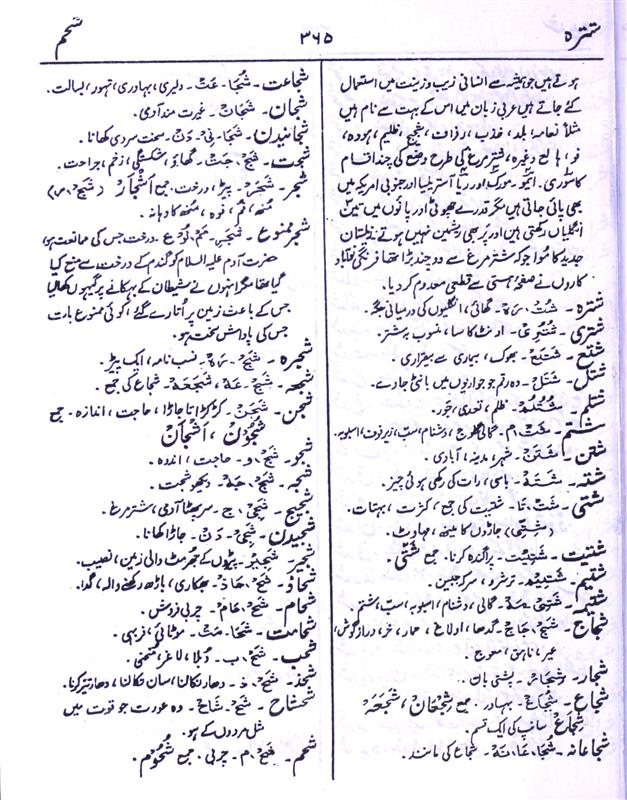 شترہ
۳۶۵
شحم
ہوتے ہیں جو ہمیشہ سے انسانی زیب و زینت میں استعمال
کئے جاتے ہیں عربی زبان میں اس کے بہت سے نام ہیں
مثلاً نعامہ، بلد، خذب، زفاف،
وغیرہ، شتر مرغ کی طرح وضع کی چند اقسام
کاسوری۔ ایمو۔ مورک اور ریا آسٹریلیا اور جنوبی امریکہ میں
بھی پائی جاتی ہیں مگر قدرے چھوٹی اور پاؤں میں تین
انگلیاں رکھتی ہیں اور پر بھی ریشمین نہیں ہوتے۔
جدید کا موا جو کہ شتر مرغ سے دو چند بڑا تھا فرنگی
کاروں نے صفحۂ ہستی سے قطعی معدوم کر دیا۔
شترہ۔ شُتْ، رَہ۔ گھائی، انگلیوں کی درمیانی جگہ۔
شتری۔ شُتُرِی۔ اونٹ کا سا، منسوب بہ شتر۔
شتع۔ شَتَع۔ بھوک، بیماری سے بیقراری۔
شتل۔ شَتَل۔ وہ رقم جو جوارئوں میں بانٹی جاوے۔
شتلم۔ شُتُلُم۔ ظلم، تعدی، جَور۔
شتم۔ شَتْ، م۔ گالی گلوچ، دشنام، سب،
شتن۔ شَتَن۔ شہر، مدینہ، آبادی۔
شتہ۔ شَتَہ۔ باسی، رات کی رکھی ہوئی چیز۔
شتی۔ شَتْ، تَا۔ شتیت کی جمع، کثرت، بہتات۔
(شِتِی) جاڑوں کا مینہ، مہاوٹ۔
شتیت۔ شَتِیت۔ پراگندہ کرنا۔ جمع شَتّٰی۔
شتیم۔ شَتِیم۔ ترشرو، سرکہ جبین۔
شتیمہ۔ شَتِیْ، مَہ۔ گالی، دشنام، سب، شتم۔
شجاج۔ شَحْ، حَاج۔ گدھا، اولاغ، حمار، خر، دراز گوش،
عیر، ناہق،
شجار۔ شِجَار۔ پشتی بان۔
شجاع۔ شُجَاع۔ بہادر۔ جمع شِجْعَان، شَجَعَہ
شِجَاع سانپ کی ایک قسم۔
شجاعانہ۔ شُجَا، عَا، نَہ۔ شجاع کی مانند۔
شجاعت۔ شُجَا، عَت۔ دلیری، بہادری، تہور، بسالت۔
شجان۔ شُجَان۔ غیرت مند آدمی۔
شجانیدن۔ شَجَا، نِیْ، دَن۔ سخت سردی کھانا۔
شجت۔ شَجْ، جَت۔ گھاؤ، شکستگی، زخم، جراحت۔
شجر۔ شَجَر۔ پیڑ، درخت۔ جمع اَشْجَار (شَجْ، ر)
مُنہ، فم، فوہ، مُنہ کا دہانہ۔
شجر ممنوع۔ شَجَرِ، مَمْ، نُوْع۔ درخت جس کی ممانعت ہو،
حضرت آدم علیہ السلام کو گندم کے درخت سے منع کیا
گیا تھا مگر انہوں نے شیطان کے بہکانے پر گیہوں کھا لیا
جس کے باعث زمین پر اُتارے گئے، کوئی ممنوع بات
جس کی پاداش سخت ہو۔
شجرہ۔ شَجْ، رَہ۔ نسب نامہ، ایک پیڑ۔
شجعہ۔ شَجْ، عَہ، شَجَعَہ۔ شجاع کی جمع۔
شجن۔ شَجَن۔ کڑکڑاتا جاڑا، حاجت، اندازہ۔ جمع
شُجُوْن، اَشْجَان
شجو۔ شَجْ، و۔ حاجت، اندوہ۔
شجہ۔ شَجْ، جَہ۔ دیکھو شجت۔
شجیج۔ شَجِیْ، ج۔ سر پھٹا آدمی، شتر مرغ۔
شجیدن۔ شَجِیْ، دَن۔ جاڑا کھانا۔
شجیر۔ شَجِیْر۔ پیڑوں کے جھرمٹ والی زمین، نصیب۔
شحاذ۔ شَحْ، حَاذ۔ بھکاری، باڑھ رکھنے والا، گدا۔
شحام۔ شَحْ، حَام۔ چربی فروش۔
شحامت۔ شَحَا، مَت۔ موٹائی، فربہی۔
شحب۔ شَحْ، ب۔ دُبلا، لاغر،
شحذ۔ شَحْ، ذ۔ دھار نکالنا، سان نکالنا، دھار تیز کرنا۔
شحشاح۔ شَحْ، شَاح۔ وہ عورت جو قوت میں
مثل مردوں کے ہو۔
شحم۔ شَحْ، م۔ چربی۔ جمع شُحُوْم۔